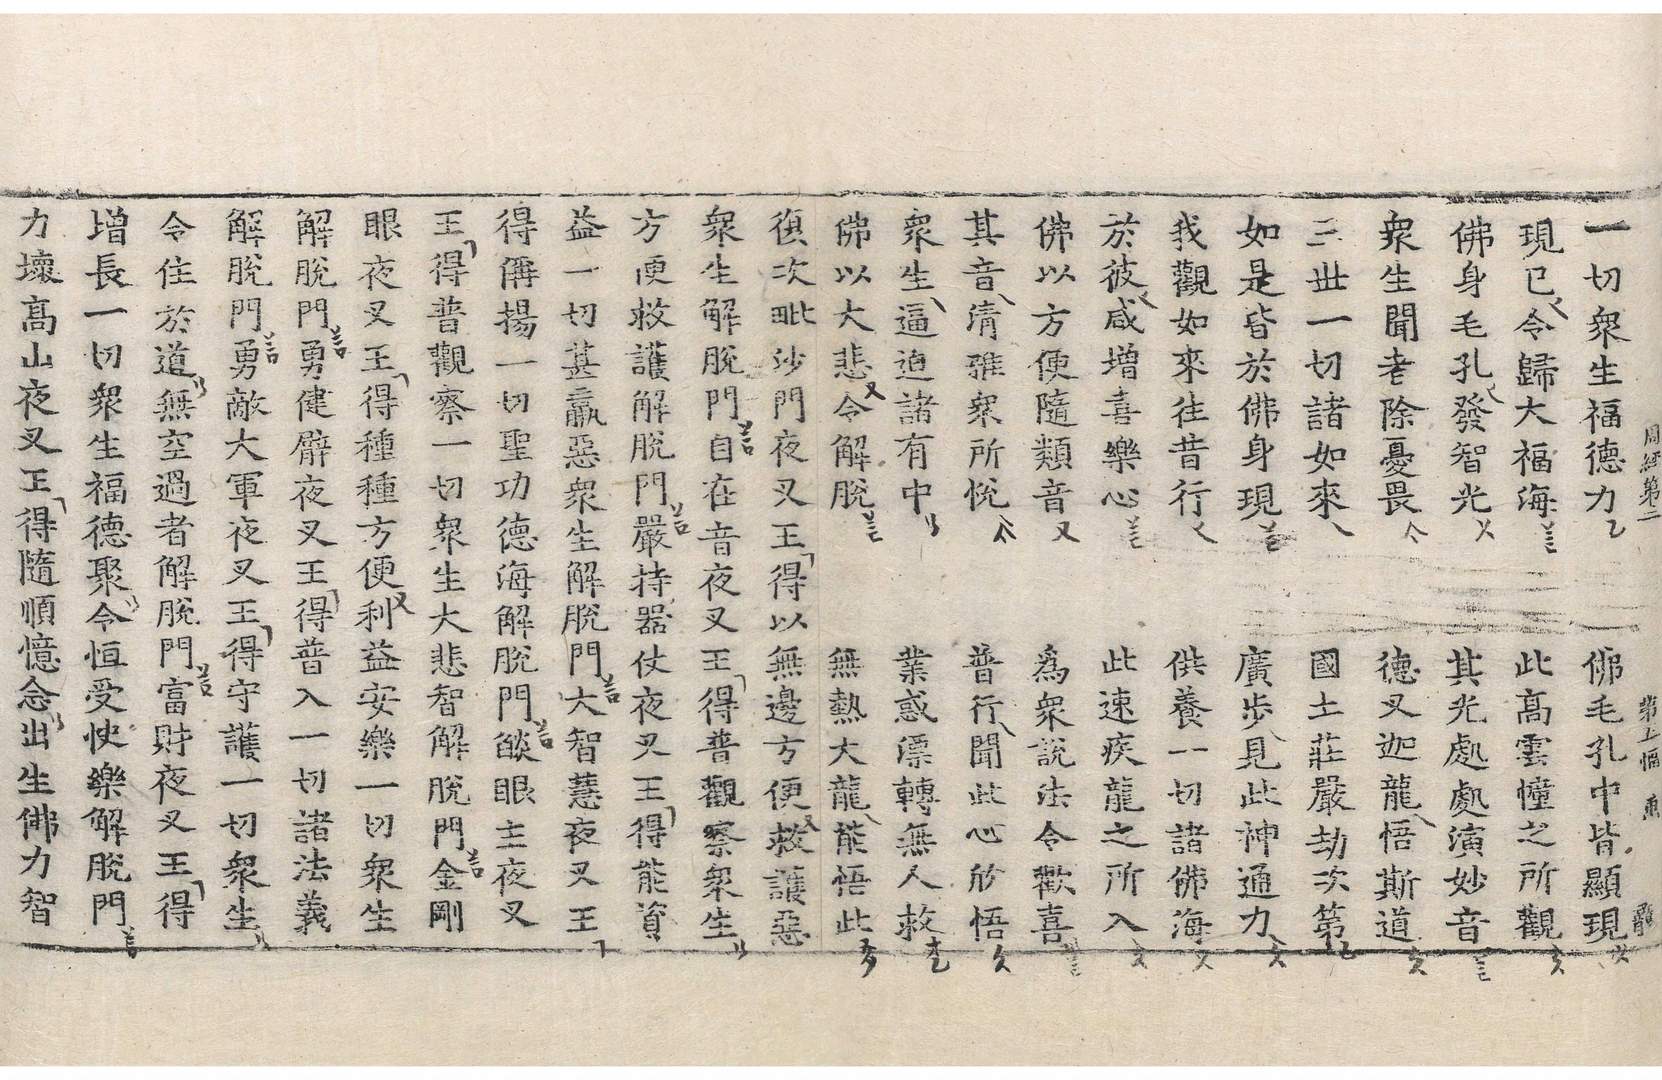 周經第二 第七幅
一切衆生福德力 佛毛孔中皆顯現
現已令歸大福海 此高雲幢之所觀
佛身毛孔發智光 其光處處演妙音
衆生聞者除憂畏 德叉迦龍悟斯道
三世一切諸如來 國土莊嚴劫次第
如是皆於佛身現 廣步見此神通力
我觀如來往昔行 供養一切諸佛海
於彼咸增喜樂心 此速疾龍之所入
佛以方便隨類音 爲衆說法令歡喜
其音清雅衆所悅 普行聞此心欣悟
衆生逼迫諸有中 業惑漂轉無人救
佛以大悲令解脫 無熱大龍能悟此
復次毗沙門夜叉王得以無邊方便救護惡
衆生解脫門自在音夜叉王得普觀察衆生
方便救護解脫門嚴持器仗夜叉王得能資
益一切甚羸惡衆生解脫門大智慧夜叉王
得偁揚一切聖功德海解脫門焰眼主夜叉
王得普觀察一切衆生大悲智解脫門金剛
眼夜叉王得種種方便利益安樂一切衆生
解脫門勇健臂夜叉王得普入一切諸法義
解脫門勇敵大軍夜叉王得守護一切衆生
令住於道無空過者解脫門富財夜叉王得
增長一切衆生福德聚令恒受快樂解脫門
力壞高山夜叉王得隨順憶念出生佛力智